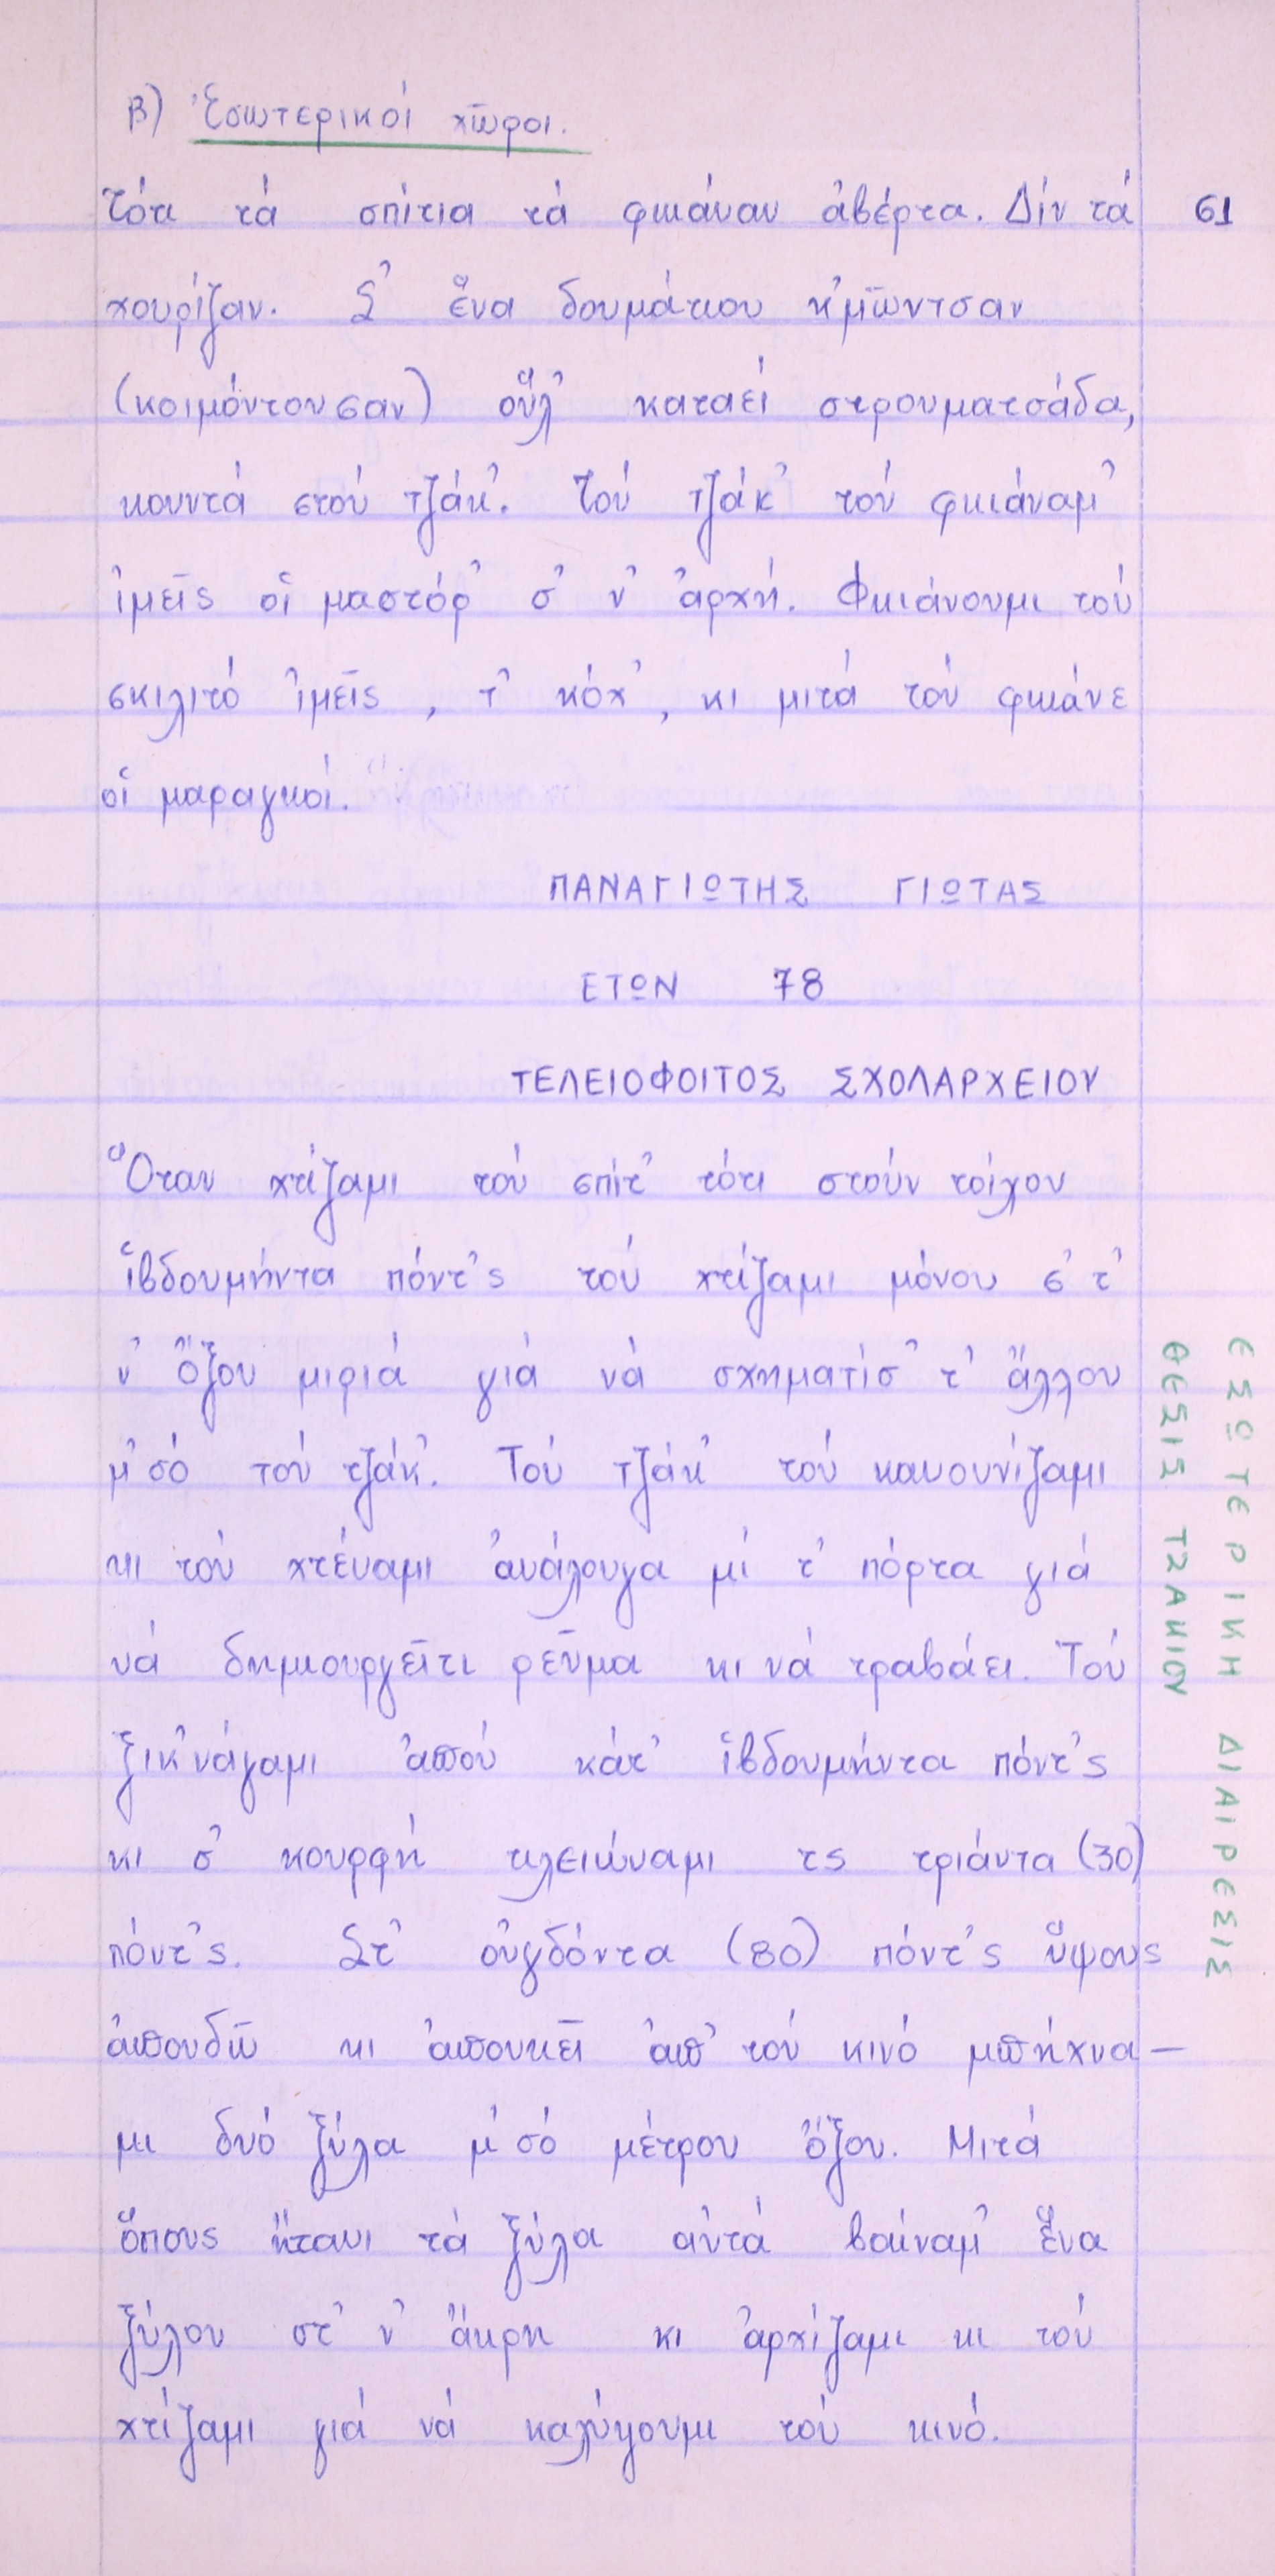 Β) Ἐσωτερικοί χῶροι.
Τότι τά σπίτια τά φκιάναν ἀβέρτα. Δίν τά
61
χουρίζαν. Σ᾿ ἕνα δουμάτιου κ᾿μῶντσαν
(κοιμόντουσαν) οὕλ᾿ καταεί στρουματσάδα,
κουντά στού τζάκ᾿. Τού τζάκ᾿ τού φκιάναμ᾿
ἱμεῖς οἱ μαστόρ᾿ σ᾿ ν᾿ ἀρχή. Φκιάνουμι τού
σκιλιτό ἱμεῖς, τ᾿ κόχ᾿, κι μιτά τού φκιάνε
οἱ μαραγκοί.
ΠΑΝΑΓΙΩΤΗΣ ΓΙΩΤΑΣ
ΕΤΩΝ 78
ΤΕΛΕΙΟΦΟΙΤΟΣ ΣΧΟΛΑΡΧΕΙΟΥ
Ὅταν χτίζαμι τού σπίτ᾿ τότι στούν τοίχου
ἱβδουμήντα πόντ᾿ς τού χτίζαμι μόνου σ᾿ τ᾿
ν᾿ ὄξου μιριά γιά νά σχηματίσ᾿ τ᾿ ἄλλου
μ᾿σό τού τζάκ᾿. Τού τζάκ᾿ τού κανουνίζαμι
κι τού χτέναμι ἀνάλουγα μί τ᾿ πόρτα γιά
νά δημιουργεῖτι ρεῦμα κι νά τραβάει. Τού
ξικ᾿νάγαμι ἀπού κάτ᾿ ἱβδουμήντα πόντ᾿ς
κι σ᾿ κουρφή κλειώναμι τς τριάντα (30)
πόντ᾿ς. Στ᾿ οὐγδόντα (80) πόντ᾿ς ὕψους
ἀπουδῶ κι ἀπουκεῖ ἀπ᾿ τού κινό μπήχνα–
μι δυό ξύλα μ᾿σό μέτρου ὄξου. Μιτά
ὅπους ἤτανι τά ξύλα αὐτά βαίναμ᾿ ἕνα
ξύλου στ᾿ ν᾿ ἄκρη κι ἀρχίζαμι κι τού
χτίζαμι γιά νά καλύψουμι τού κινό.
ΕΣΩΤΕΡΙΚΗ ΔΙΑΙΡΕΣΙΣ
ΘΕΣΙΣ ΤΖΑΚΙΟΥ